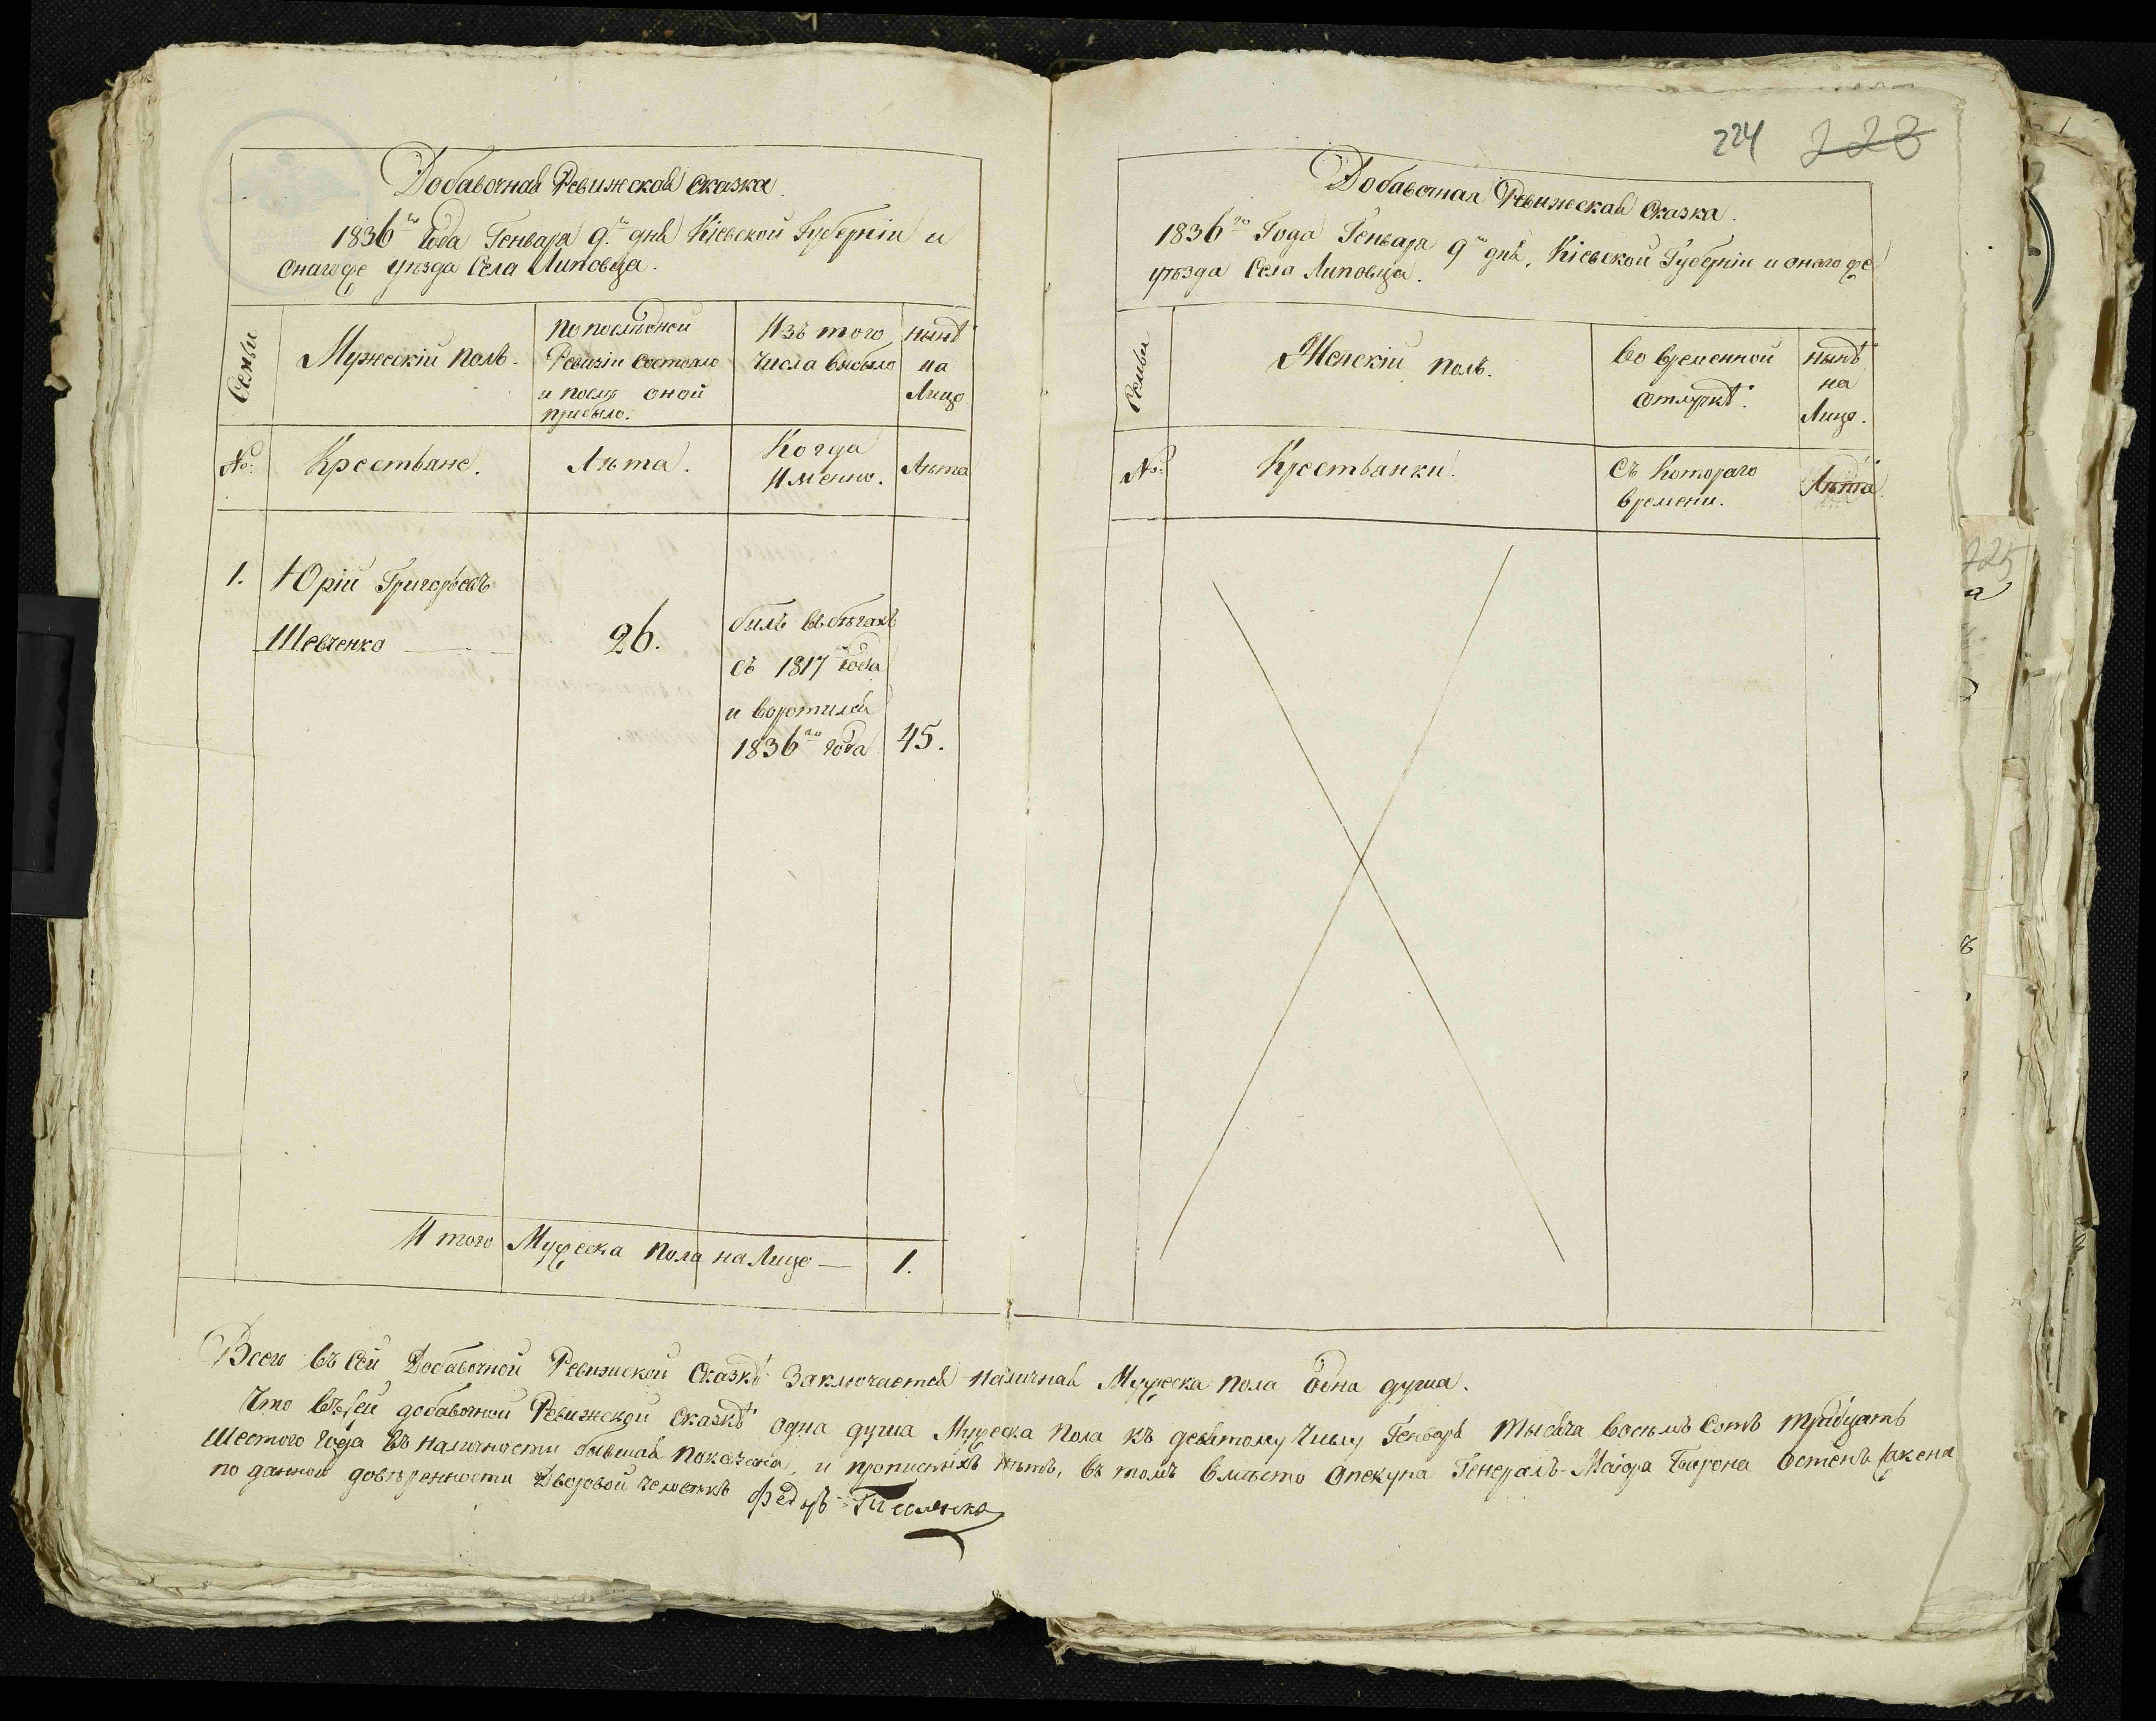 Добавочная Ревижская Сказка.
1836го Года Генваря 9го дня Кіевской Губерніи и
онагоже уѣзда Села Липовца.
Семьи
Мужескій полъ.
по послѣдной
Ревизіи состояло
и послѣ оной
прибыло.
Изъ того
числа выбыло
нынѣ
на
Лицо
№:
Крестьяне.
Лѣта.
Когда
Именно.
Лѣта
1.
Юрій Григорьевъ
Шевченко
26.
билъ въ бѣгахъ
съ 1817го года
и воротился
1836го года
45.
Итого Мужеска пола на Лицо — 1.
224 223
Добавочная Ревижская Сказка.
1836го Года Генваря 9го дня, Кіевской Губерніи и онагоже
уѣзда Села Липовца.
Семьи
Женскій полъ.
Во временной
отлучкѣ.
нынѣ
на
Лицо.
№:
Крестьянки.
Съ Котораго
времени.
Лѣта
225
Всего въ сей Добавочной Ревижской Сказкѣ Заключается наличная Мужеска пола одна душа.
Что въ сей добавочной Ревижской Сказкѣ одна душа Мужеска пола къ девятому числу Генваря тысяча восемъ сотъ тридцать
шестого года въ наличности бывшая показана, и прописныхъ нѣтъ, въ томъ вмѣсто опекуна Генералъ-Маіора Барона Остенъ Сакена
по данной довѣренности Дворовой человѣкъ